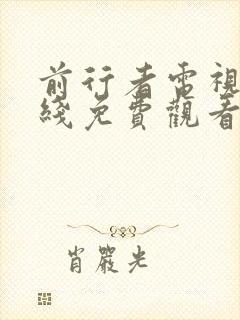 前行者電視
綫免費觀看
肖嚴光